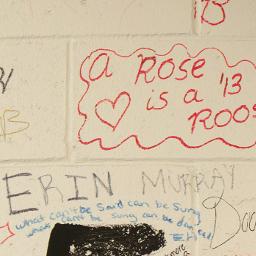 B
a Rose '13
is a
ROOS
B
ERIN MURRAY
what can't be said can be sung
what can't be sung can be danced
EH
Doc